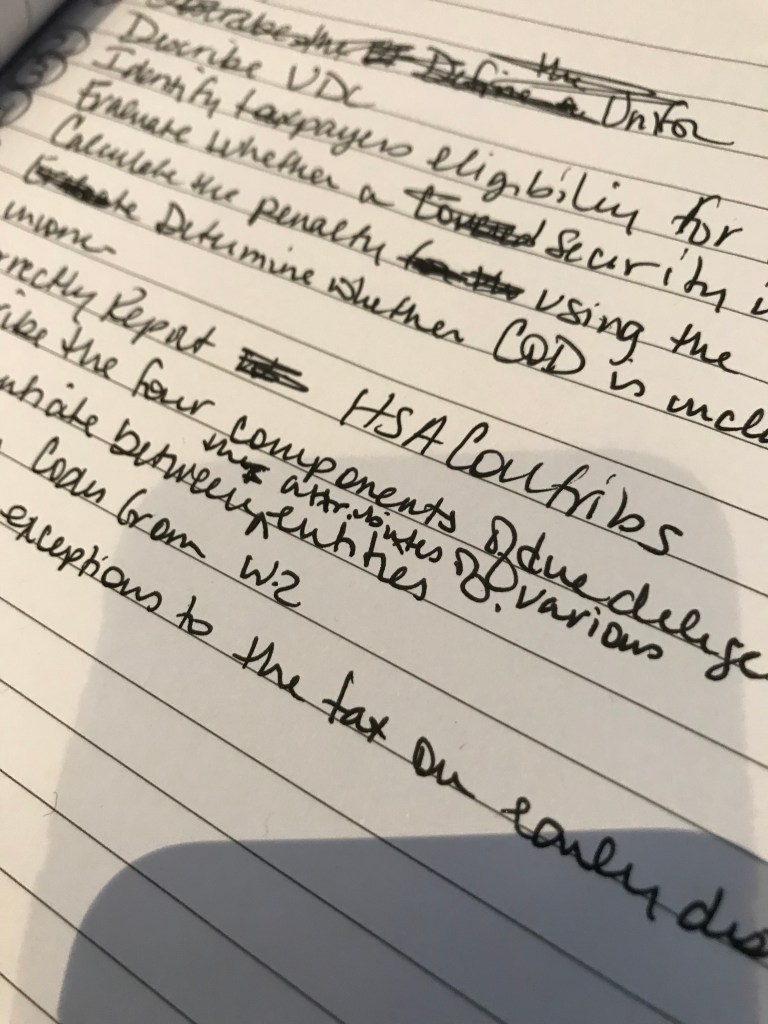 Unifor
Describe VDC
Identify taxpayers eligibility for
Evaluate whether a security i
Calculate the penalty using the
Determine whether COD is inclu
income
rrectly Report HSA Contribs
ribe the four components of due delige
ntiate between the attributes of various entities
Codes from W-2
exceptions to the tax on early dis